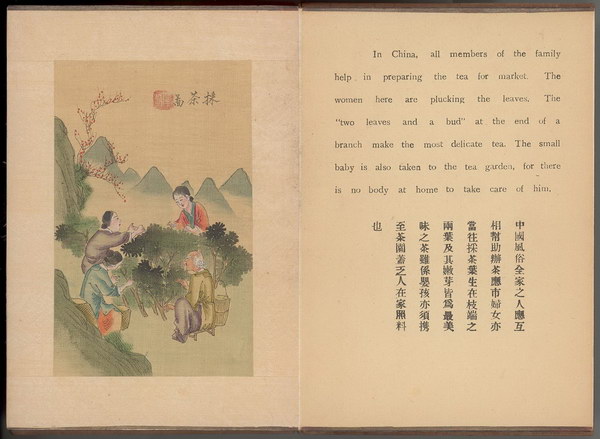 採茶圖
In China, all members of the family
help in preparing the tea for market. The
women here are plucking the leaves. The
"two leaves and a bud" at the end of a
branch make the most delicate tea. The small
baby is also taken to the tea garden, for there
is no body at home to take care of him.
中國風俗全家之人應互
相幫助辦茶應市婦女亦
當往採茶葉生在枝端之
兩葉及其嫩芽皆爲最美
味之茶雖係嬰孩亦須携
至茶園蓋乏人在家照料
也